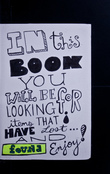 IN this
BOOK
YOU
WILL BE
LOOKING FOR
items THAT
HAVE Lost...
& found
Enjoy!